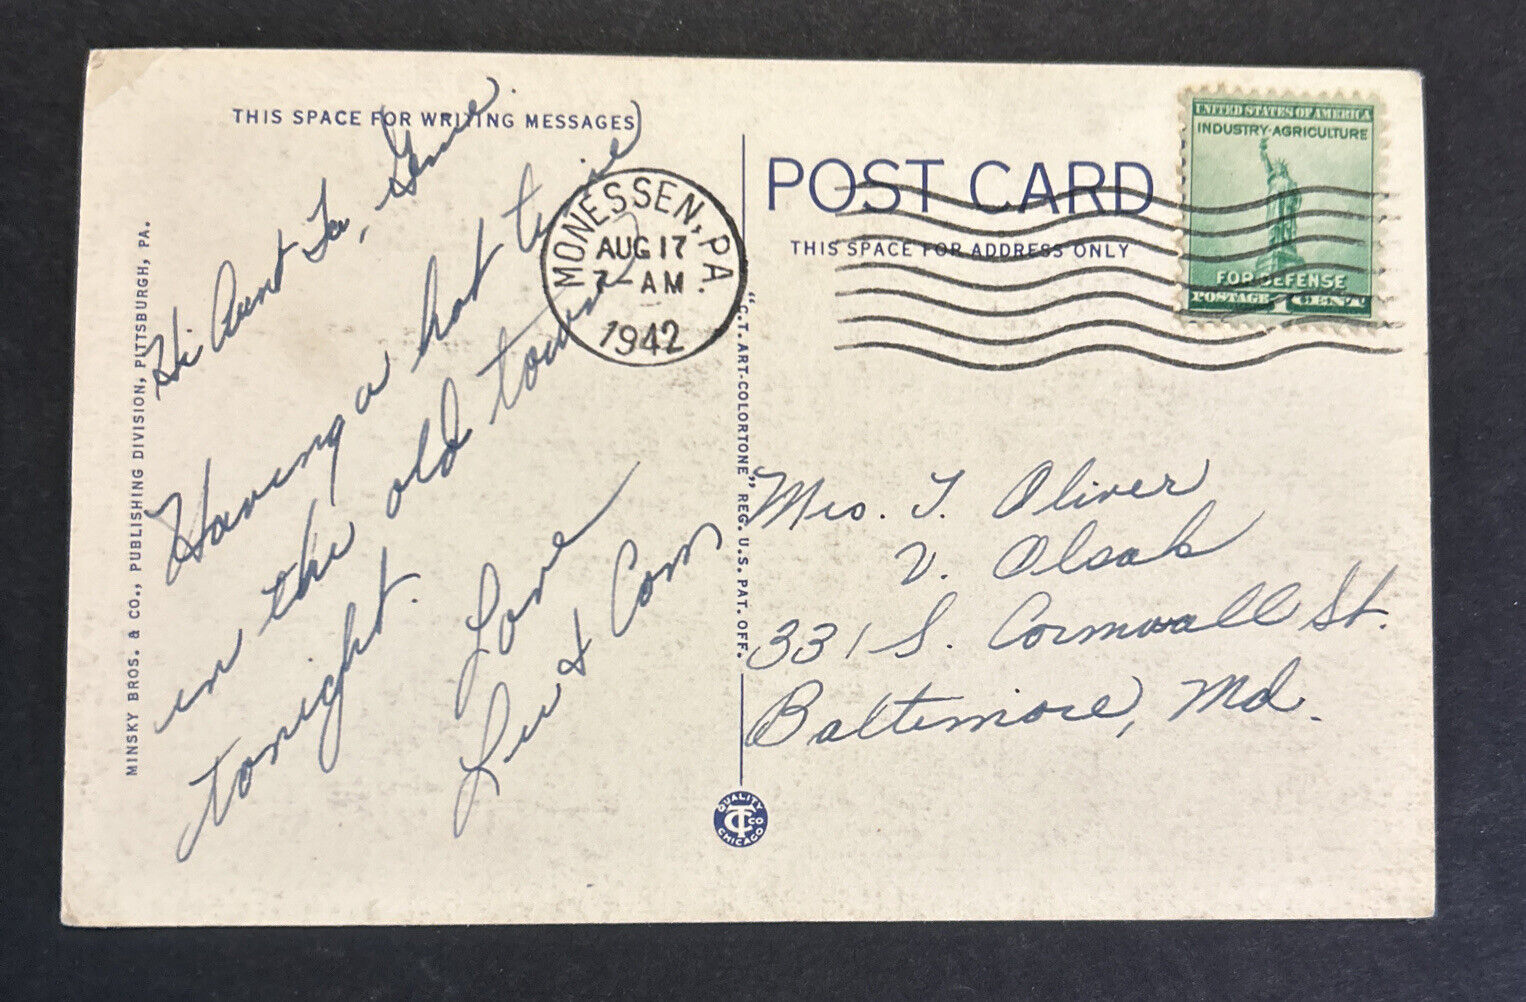 THIS SPACE FOR WRITING MESSAGES
Hi Aunt
Having a hot
in the old town
tonight.
Love
MINSKY BROS. & CO., PUBLISHING DIVISION, PITTSBURGH, PA.
MONESSEN, PA.
AUG 17
7-AM
1942
"C.T. ART-COLORTONE" REG. U.S. PAT. OFF.
QUALITY
CT CO
CHICAGO
POST CARD
THIS SPACE FOR ADDRESS ONLY
UNITED STATES OF AMERICA
INDUSTRY·AGRICULTURE
FOR DEFENSE
POSTAGE 1 CENT
Mrs. T. Oliver
V. Olsak
331 S. Cornwall St.
Baltimore, Md.